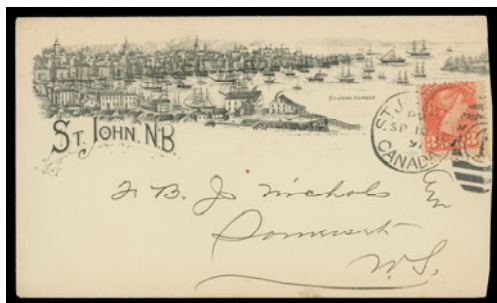 ST JOHN HARBOR
ST. JOHN, N.B.
ST. J
PM
SP 10
CANADA
3 3
B. J. Nichols Esq
Somerset
N.S.